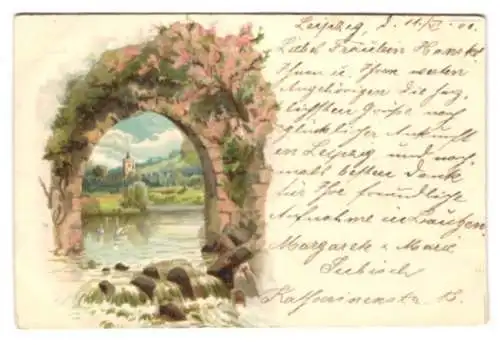 Leipzig, d. 11./VI. 01.
Liebes Fräulein
Ihnen u. Ihren werten
Angehörigen die herz-
lichsten Grüße nach
glücklicher Ankunft
in Leipzig und noch-
mals besten Dank
für Ihre freundliche
Aufnahme in Bautzen.
Margarete u. Marie
Katharinenstr. 13.